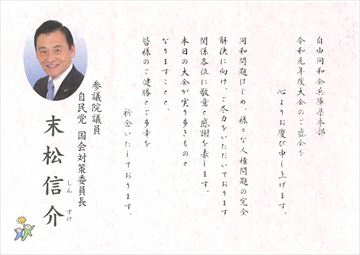 自由同和会兵庫県本部
令和元年度大会のご盛会を
心よりお慶び申し上げます。
同和問題はじめ、様々な人権問題の完全
解決に向け、ご尽力をいただいております
関係各位に敬意と感謝を表します。
本日の大会が実り多きものと
なりますことと、
皆様のご健勝とご多幸を
祈念いたしております。
参議院議員
自民党 国会対策委員長
末松信介
しん すけ